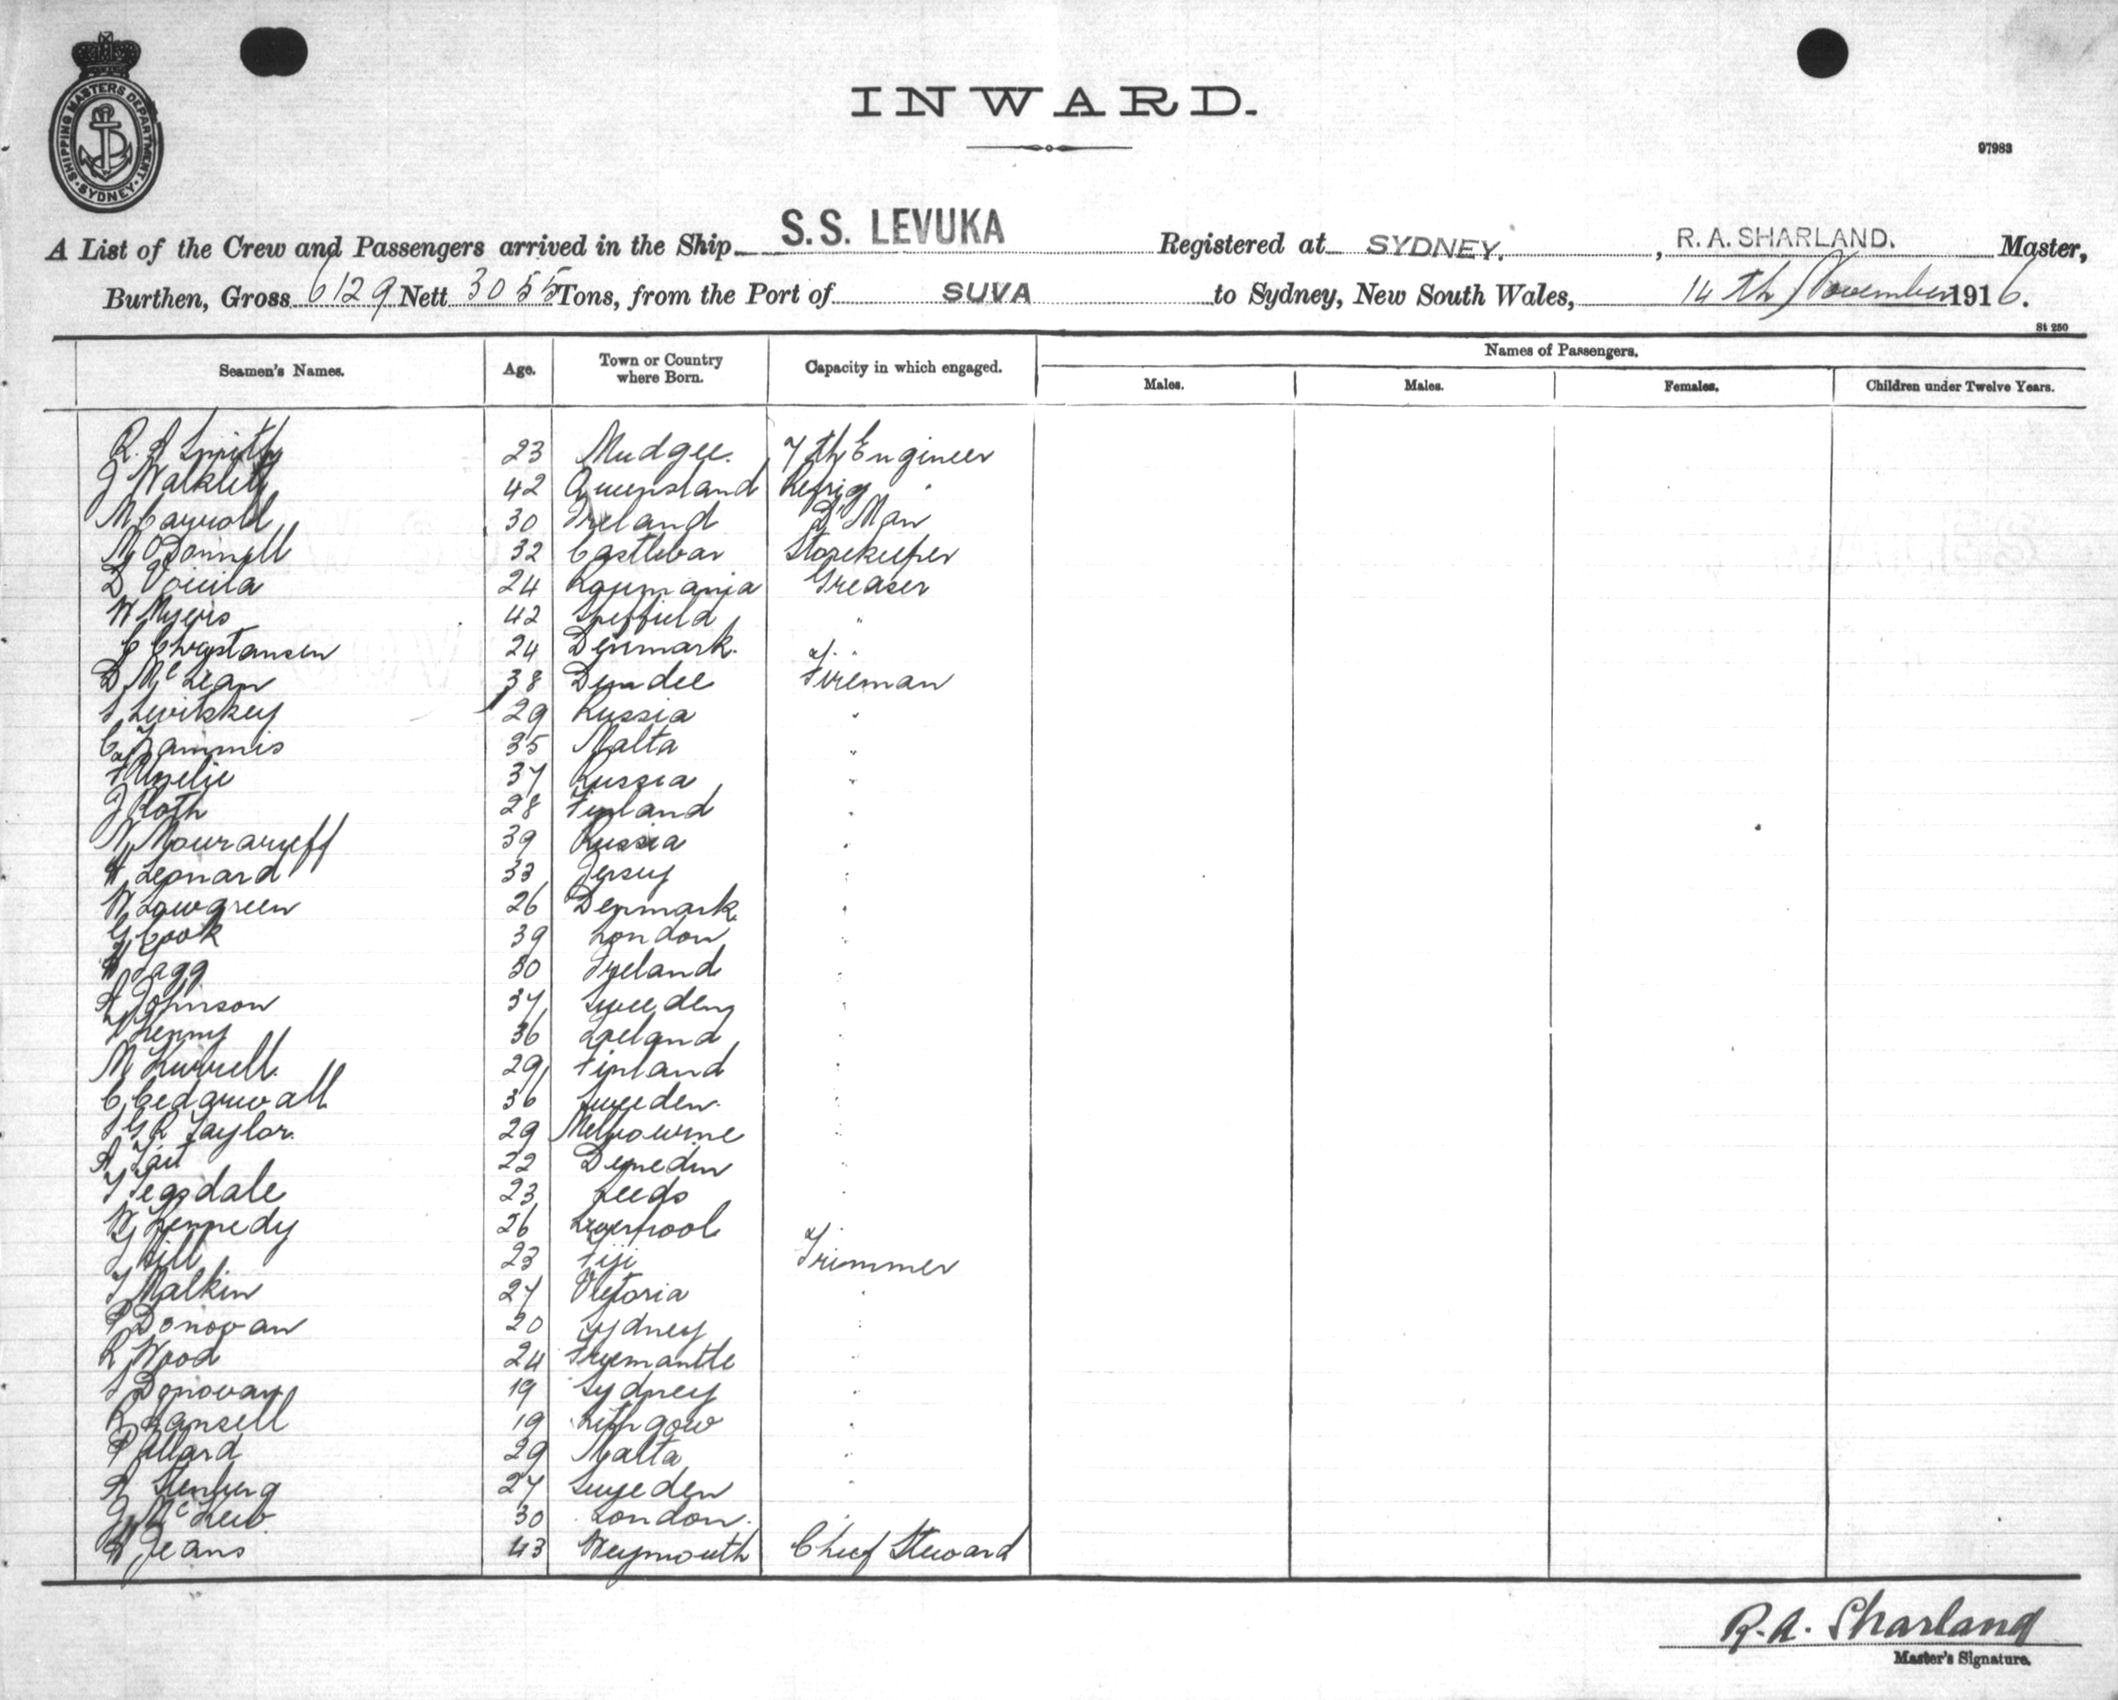 SHIPPING MASTERS DEPARTMENT
SYDNEY
INWARD.
97983
A List of the Crew and Passengers arrived in the Ship S.S. LEVUKA Registered at SYDNEY. , R. A. SHARLAND. Master,
Burthen, Gross 6129 Nett 3055 Tons, from the Port of SUVA to Sydney, New South Wales, 14th November 1916.
St 250
Seamen's Names. Age. Town or Country where Born. Capacity in which engaged. Names of Passengers.
Males. Males. Females. Children under Twelve Years.
R. A Smith 23 Mudgee. 7th Engineer
J Walklett 42 Queensland Refrig "
M Carroll 30 Ireland D Man
M O'Donnell 32 Castlebar Storekeeper
D Voicila 24 Roumania Greaser
W Myers 42 Sheffield "
C Christansen 24 Denmark. "
D McLean 38 Dundee Fireman
S Levitskey 29 Russia "
C Zammis 35 Malta "
37 Russia "
J Roth 28 Finland "
N Mouraryeff 39 Russia "
H Leonard 33 Jersey "
W Lowgreen 26 Denmark "
G Cook 39 London "
H Fagg 30 Ireland "
A Johnson 37 Sweeden "
T Kenny 36 Ireland "
M Kurrell 29 Finland "
C Cedarwall 36 Sweeden "
S G R Taylor 29 Melbourne "
A Tait 22 Dunedin "
T Teasdale 23 Leeds "
W Kennedy 26 Liverpool "
J Hill 23 Fiji Trimmer
T Malkin 27 Victoria "
P Donovan 20 Sydney "
R Wood 24 Freemantle "
S Donovan 19 Sydney "
R Hansell 19 Lithgow "
P Allard 29 Malta "
A Stenberg 27 Sweeden "
J McLew 30 London "
H Jeans 43 Weymouth Chief Steward
R. A. Sharland
Master's Signature.